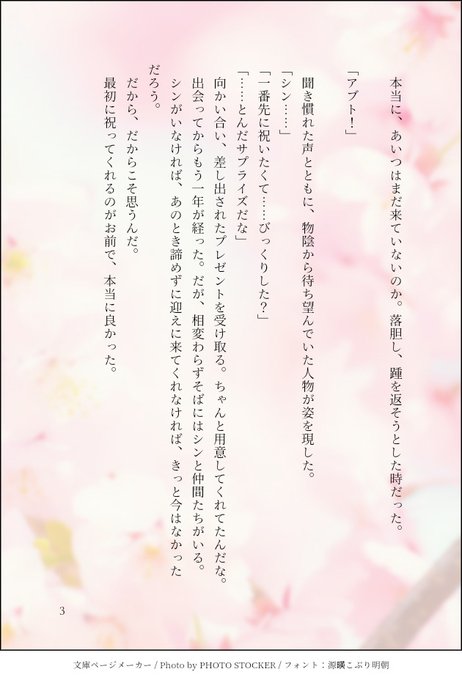 本当に、あいつはまだ来ていないのか。落胆し、踵を返そうとした時だった。
「アブト！」
聞き慣れた声とともに、物陰から待ち望んでいた人物が姿を現した。
「シン……」
「一番先に祝いたくて……びっくりした？」
「……とんだサプライズだな」
向かい合い、差し出されたプレゼントを受け取る。ちゃんと用意してくれてたんだな。
出会ってからもう一年が経った。だが、相変わらずそばにはシンと仲間たちがいる。
シンがいなければ、あのとき諦めずに迎えに来てくれなければ、きっと今はなかった
だろう。
だから、だからこそ思うんだ。
最初に祝ってくれるのがお前で、本当に良かった。
3
文庫ページメーカー / Photo by PHOTO STOCKER / フォント：源暎こぶり明朝